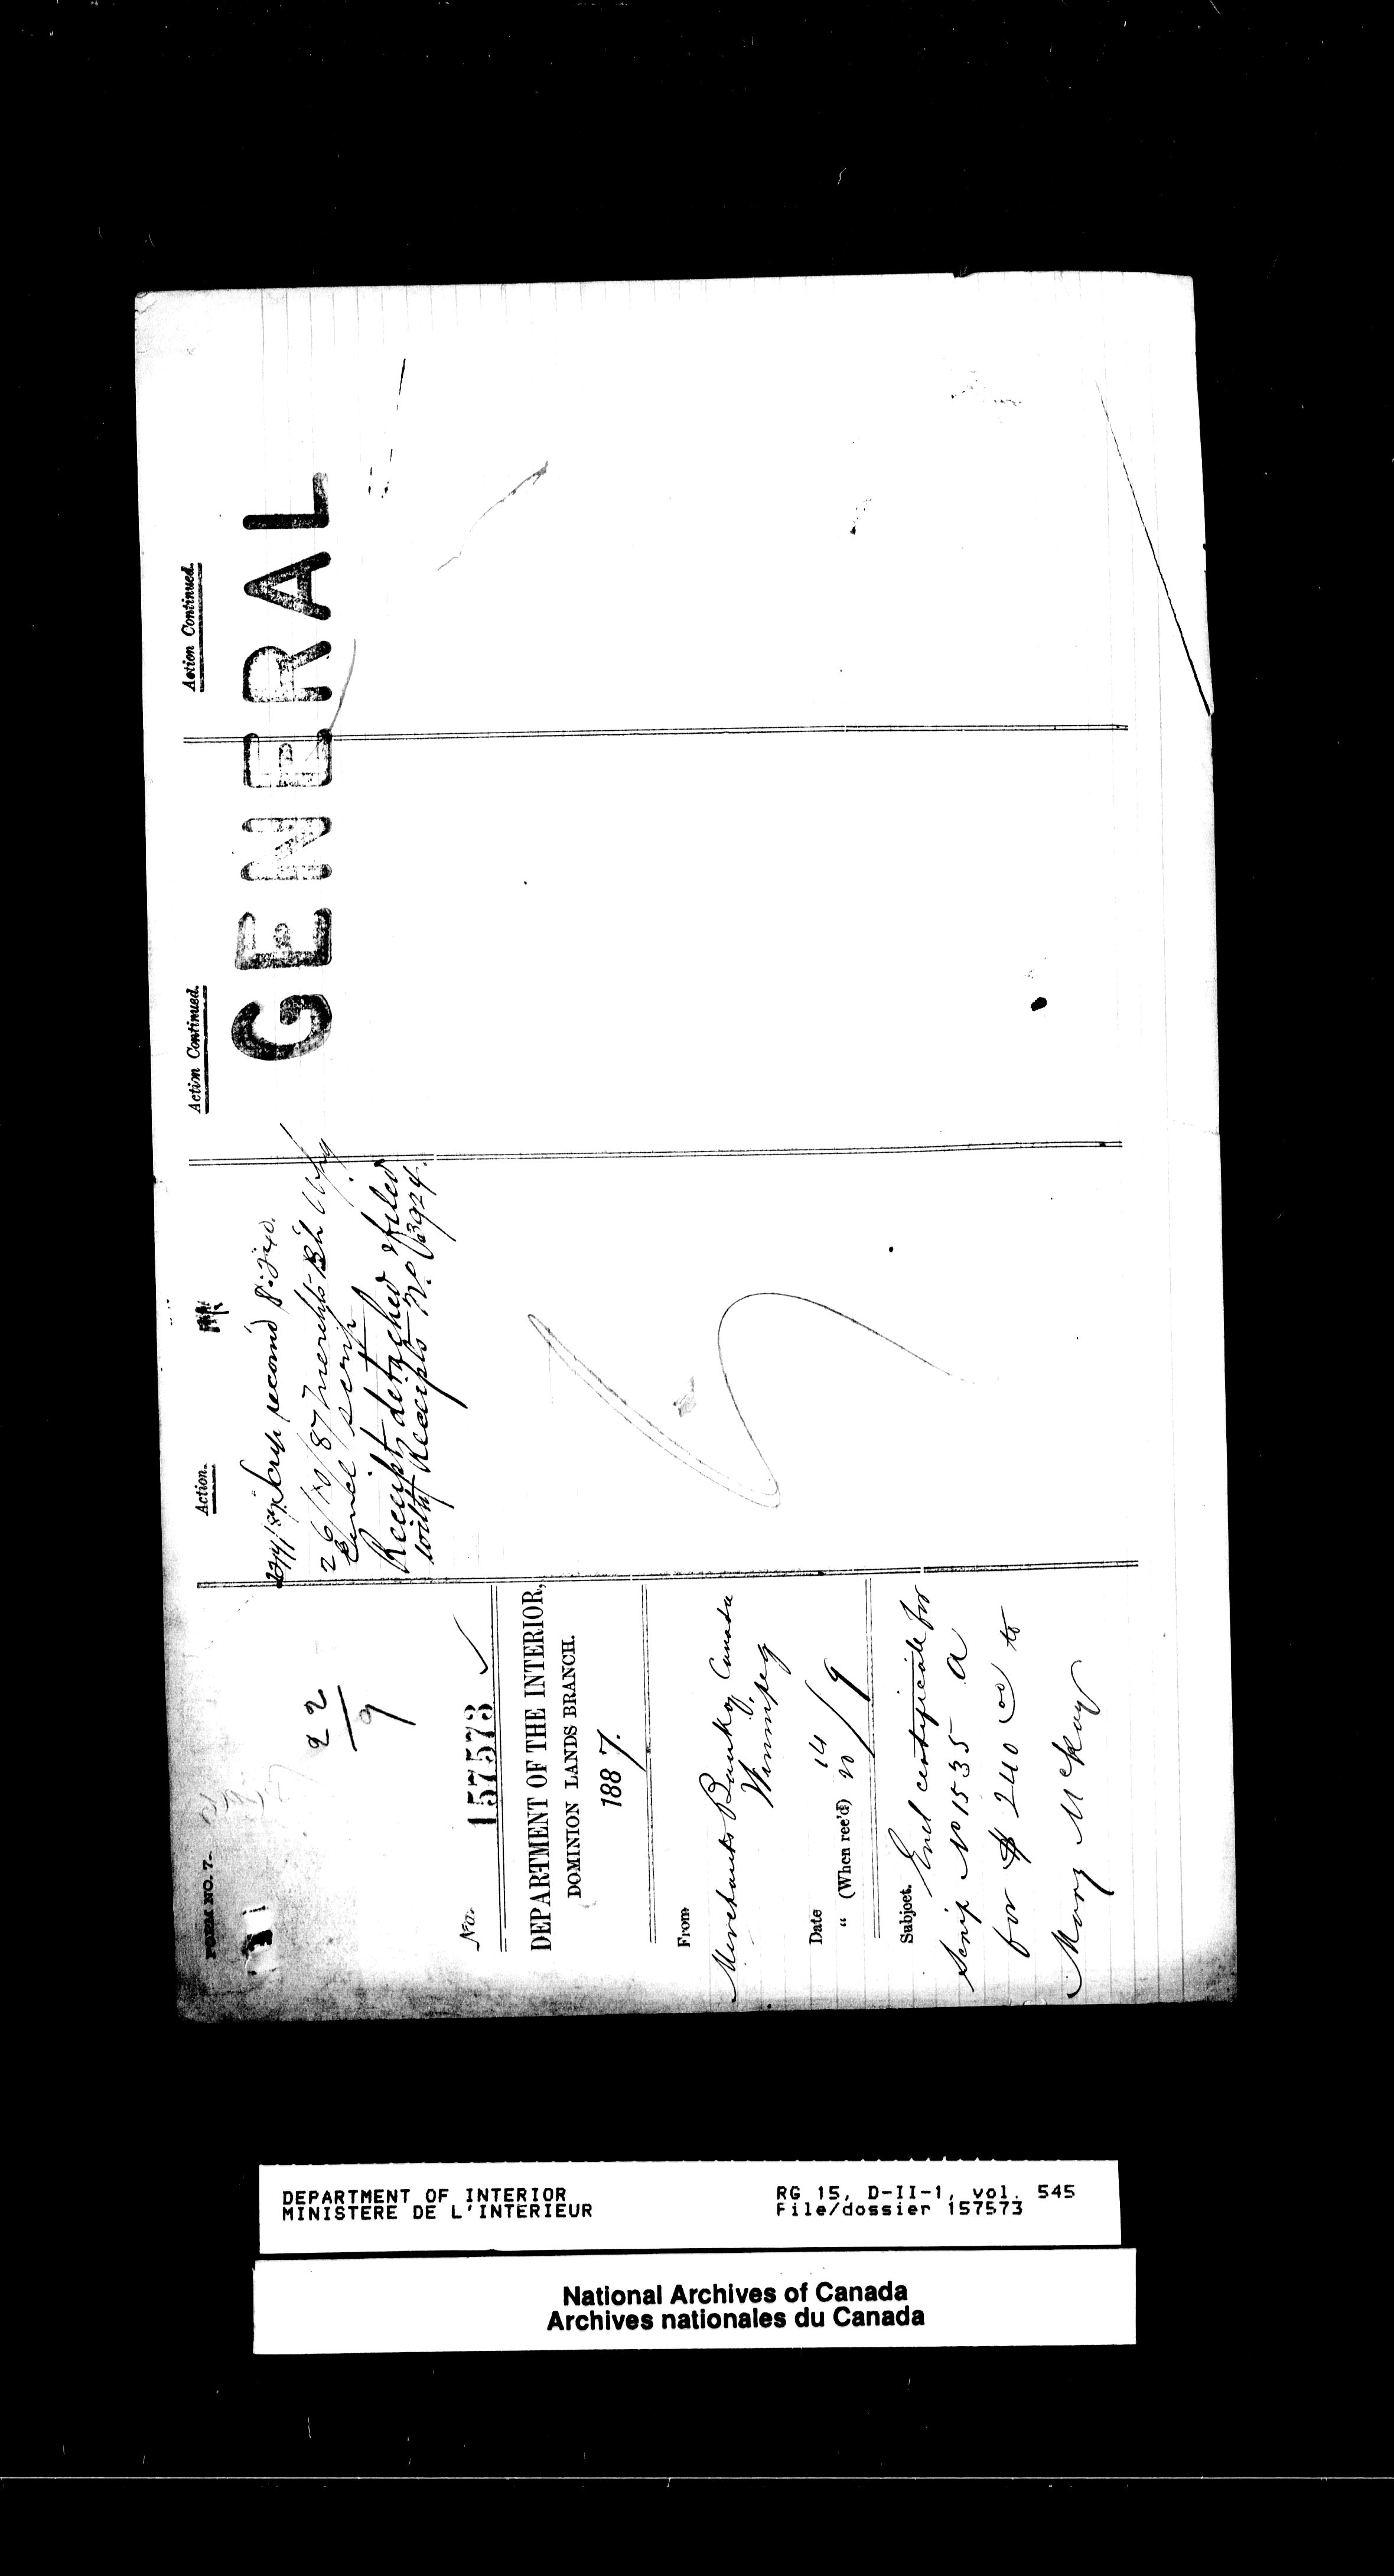 FORM NO. 7.
22
9
No. 157573
DEPARTMENT OF THE INTERIOR,
DOMINION LANDS BRANCH.
1887.
From
Merchants Bank of Canada
Winnipeg
Date 14
" (When rec'd) 20/9
Subject. Encl certificate for
Scrip No 1535 A
for $ 240 00 to
Mary McKay
Action.
Scrip record
26/ /87 Merchts Bk Wpg
Encl scrip
Receipt detached & filed
with Receipts No
Action Continued.
Action Continued.
GENERAL
DEPARTMENT OF INTERIOR
MINISTERE DE L'INTERIEUR
RG 15, D-II-1, vol. 545
File/dossier 157573
National Archives of Canada
Archives nationales du Canada